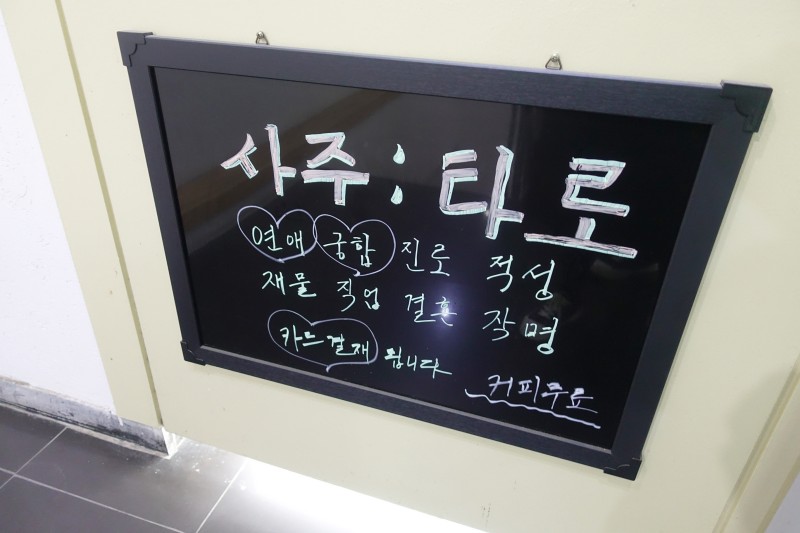 사주 : 타로
연애 궁합 진로 적성
재물 직업 결혼 작명
카드결재 됩니다
커피무료